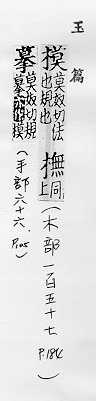 玉篇
模莫奴切法也規也橅同上(木部一百五十七 P.184)
摹莫奴切規摹或作摸(手部六十六. P.105)